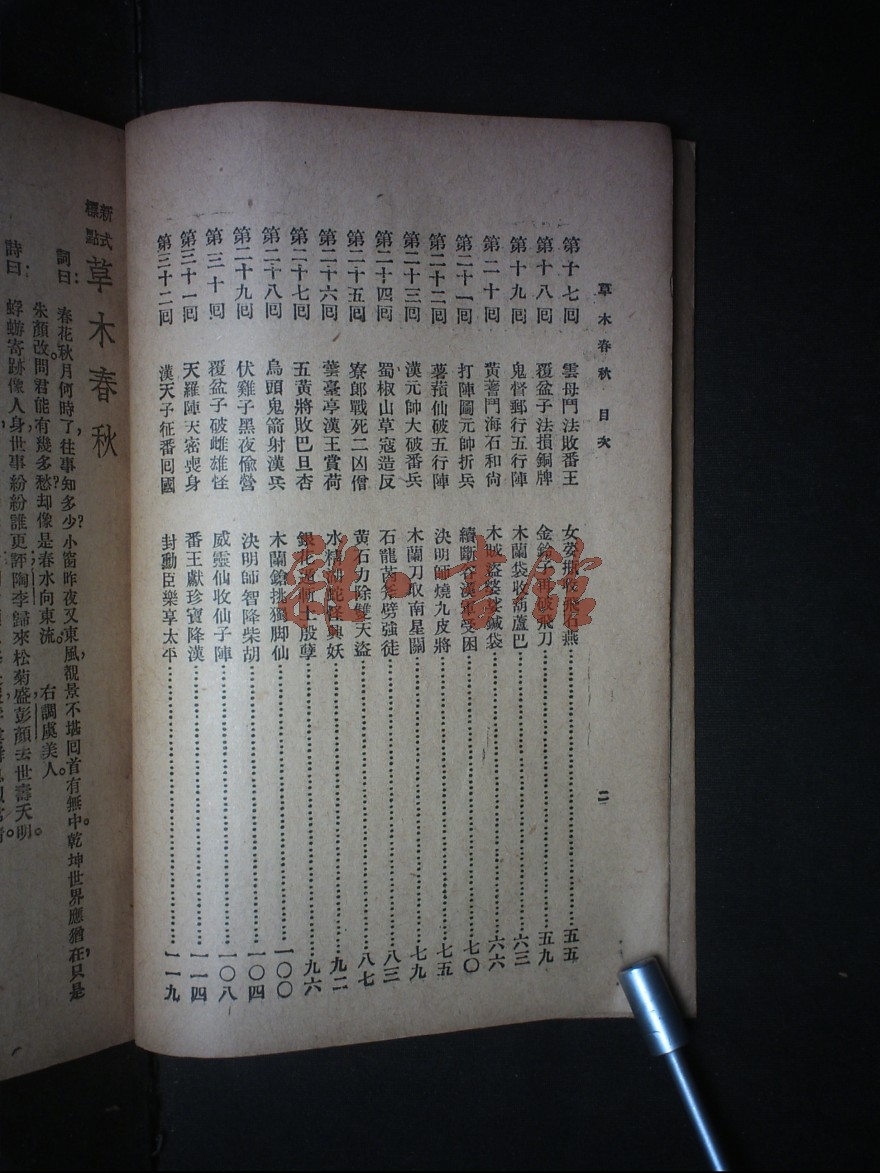 草木春秋 目次
二
第十七回 雲母鬥法敗番王 女英擲收飛石燕 五五
第十八回 覆盆子法損銅牌 金鈴子再破飛刀 五九
第十九回 鬼督郵行五行陣 木蘭袋收葫蘆巴 六三
第二十回 黃蓍鬥海石和尙 木賊盜婆娑鍼袋 六六
第二十一回 打陣圖元帥折兵 續斷谷漢軍受困 七〇
第二十二回 薯蕷仙破五行陣 決明師燒九皮將 七五
第二十三回 漢元帥大破番兵 木蘭刀取南星關 七九
第二十四回 蜀椒山草寇造反 石龍芮斧劈強徒 八三
第二十五回 寮郎戰死二凶僧 黃石力除雙天盜 八七
第二十六回 蕓臺亭漢王賞荷 水精蛇怪興妖 九二
第二十七回 五黃將敗巴旦杏 銀花上殷孽 九六
第二十八回 烏頭鬼箭射漢兵 木蘭鎗挑獨脚仙 一〇〇
第二十九回 伏雞子黑夜偸營 決明師智降柴胡 一〇四
第三十回 覆盆子破雌雄怪 威靈仙收仙子陣 一〇八
第三十一回 天羅陣天密喪身 番王獻珍寶降漢 一一四
第三十二回 漢天子征番回國 封勳臣樂享太平 一一九
新式標點 草木春秋
詞曰：春花秋月何時了，往事知多少？小窗昨夜又東風，觀景不堪回首有無中。乾坤世界應猶在，只是
朱顏改。問君能有幾多愁？却像是春水向東流。 右調虞美人。
詩曰：蜉蝣寄跡像人身，世事紛紛誰更評，陶李歸來松菊盛，彭顏去世壽夭明。